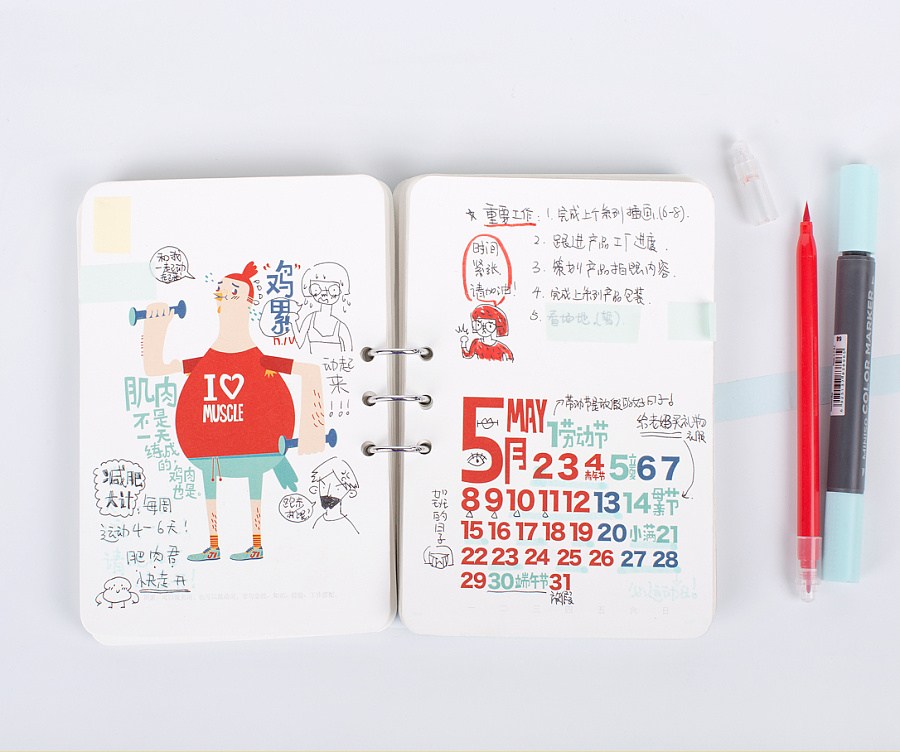 和我
一起动
起来!
"鸡
累"
I
MUSCLE
动起
来
!!!
肌肉
不是
一天
练成
的
鸡肉
也是。
减肥
大计:每周
运动4-6天!
肥肉君
快走开!
★ 重要工作: 1. 完成上个系列插画,(6-8).
2. 跟进产品工厂进度.
3. 策划产品拍照内容.
4. 完成上系列产品包装.
5. 看场地(暂)
时间
紧张
请加油!
5月
MAY
给老妈买礼物
1劳动节
2 3 4青年节 5立夏 6 7
8 9 10 11 12 13 14母亲节
15 16 17 18 19 20小满21
22 23 24 25 26 27 28
29 30端午节31
放假
的日子
COLOR MARKER